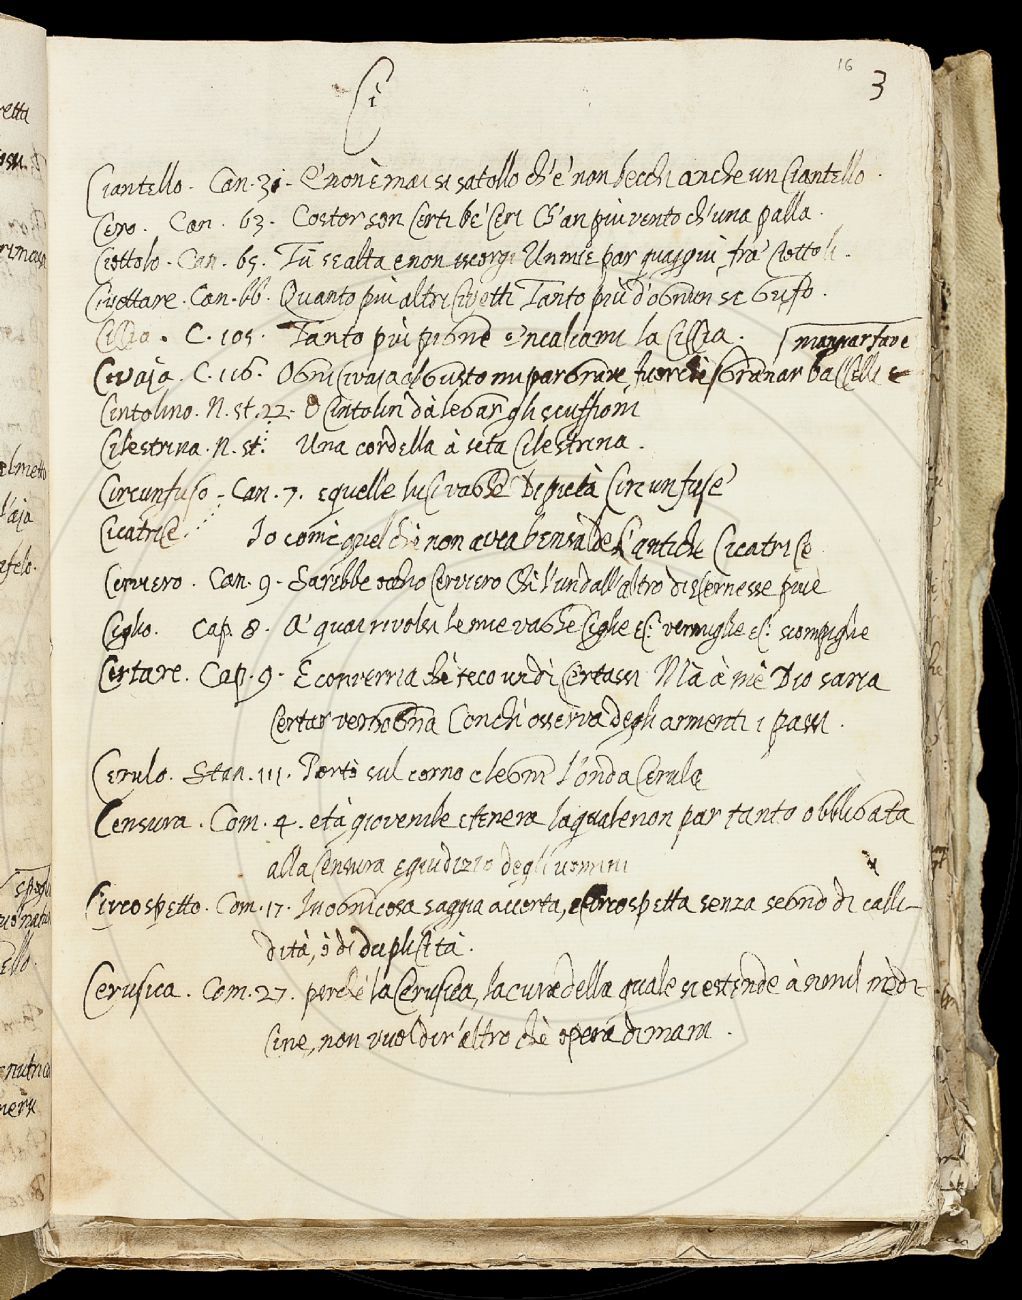 16
3
Ci
Ciantello. Can. 31. E' non è mai sì satollo ch'è non becchi anche un Ciantello.
Cero. Can. 63. Costor son Certi be' Ceri Ch'an più vento ch'una palla.
Ciottolo. Can. 65. Tu se alta e non iscorgi Un mie par quaggiù frà Ciottoli.
Civettare. Can. 66. Quanto più altri Civetti Tanto più d'ognun se gufo.
Cillia. C. 105. Tanto più pugne e'ncalzami la Cillia.
mangiar fave
Civaja. C. 116. Ogni Civaja al gusto mi par grave, fuorchè sgranar baccelli e
Cintolino. N. st. 22. O Cintolin dà legar gli scuffioni
Cilestrina. N. st. Una cordella à seta Cilestrina.
Circunfuso. Can. 7. e quelle luci vaghe Di pietà Circunfuse
Cicatrice. Io come quel chè non avea ben salde L'antiche Cicatrice
Cerviero. Can. 9. Sarebbe occhio Cerviero Chi l'un dall'altro discernesse piùe
Ciglio. Cap. 8. A' quai rivolsi le mie vaghe Ciglie &c. vermiglie &c. scompiglie
Certare. Cap. 9. E converria chè teco un dì Certassi Mà à mè Dio saria
Certar vergogna Con chi osserva degli armenti i passi.
Cerulo. Stan. 111. Portò sul corno e legni l'onda Cerula
Censura. Com. 4. età giovenile e tenera la quale non par tanto obbligata
alla Censura e giudizio degli uomini
Circospetto. Com. 17. In ogni cosa saggia accorta, e Circospetta senza segno di calli-
dità, ò di duplicità.
Cerusica. Com. 27. perchè la Cerusica, la cura della quale si estende à simil medi-
cine, non vuol dir'altro chè opera di mani.